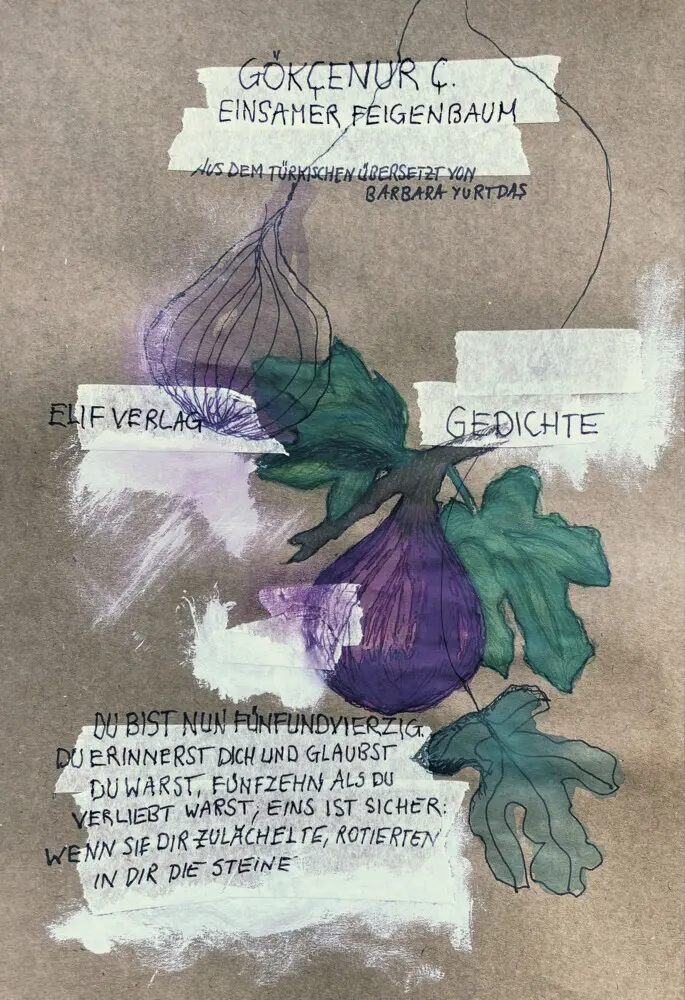 GÖKÇENUR Ç.
EINSAMER FEIGENBAUM
AUS DEM TÜRKISCHEN ÜBERSETZT VON
BARBARA YURTDAŞ
ELIF VERLAG
GEDICHTE
DU BIST NUN FÜNFUNDVIERZIG.
DU ERINNERST DICH UND GLAUBST
DU WARST, FÜNFZEHN ALS DU
VERLIEBT WARST, EINS IST SICHER:
WENN SIE DIR ZULÄCHELTE, ROTIERTEN
IN DIR DIE STEINE